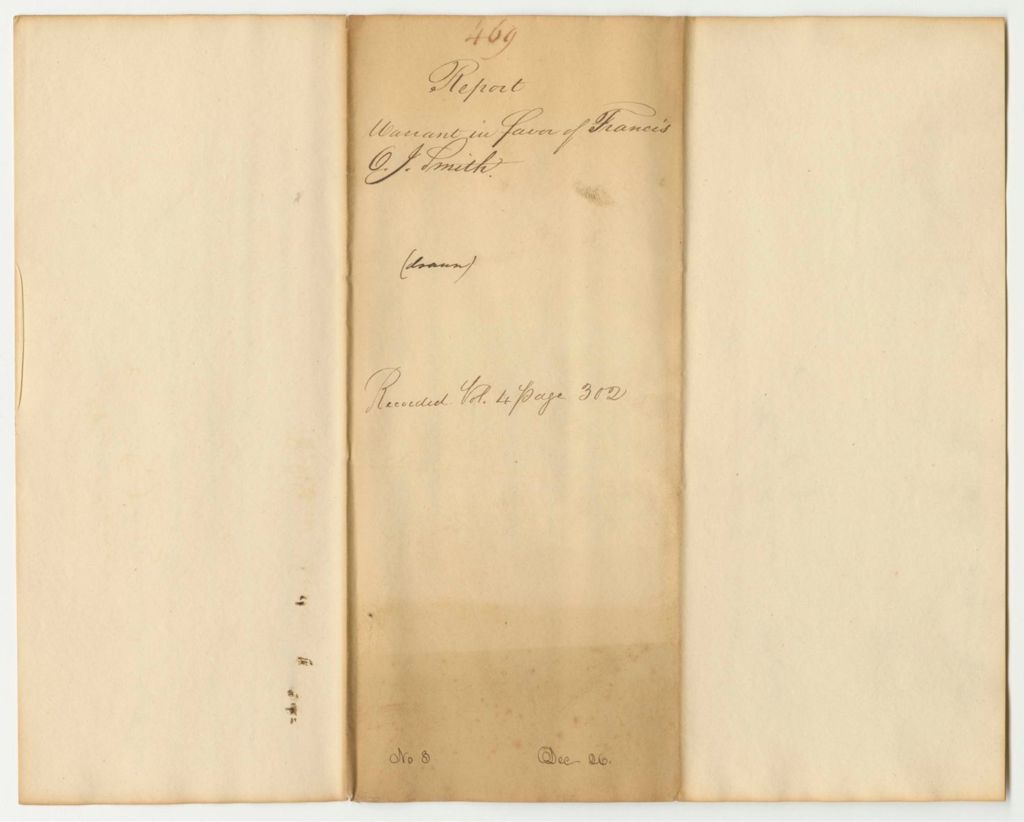 469
Report
Warrant in favor of Francis
O. J. Smith.
(drawn)
Recorded Vol. 4 page 302
No 8 Dec 26.